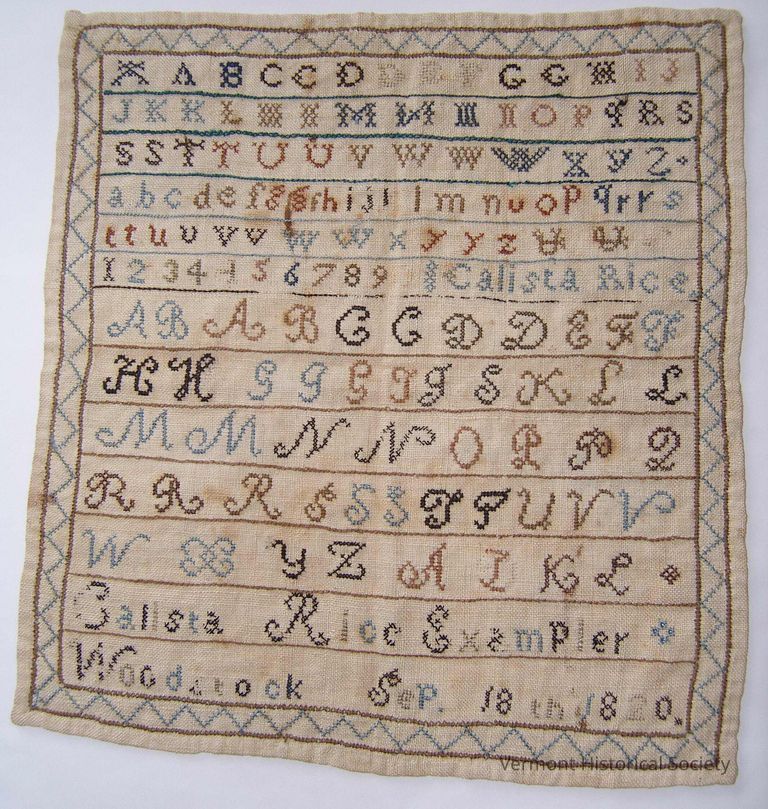 A A B C C D D E F G G H I J
J K K L M N M N O P Q R S
S S T T U U V W W W X Y Z
a b c d e f g h i j l m n u o p q r r s
t t u u v v w w x y y z
1 2 3 4 5 6 7 8 9 Calista Rice
A B A B C C D D E F F
H H G G G I J S K L L
M M N N O P P Q
R R R S S S T T U V V
W X Y Z A I K L
Calista Rice Exempler
Woodstock Sep. 18th 1820.
Vermont Historical Society